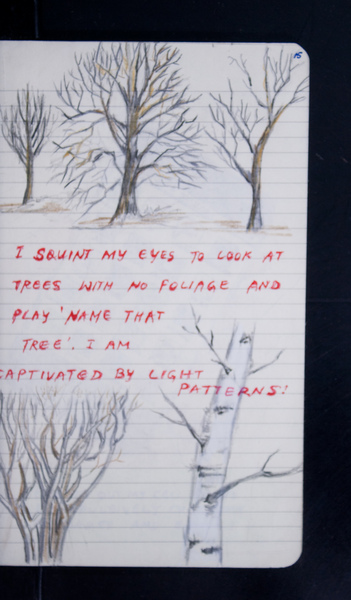 15
I SQUINT MY EYES TO LOOK AT
TREES WITH NO FOLIAGE AND
PLAY 'NAME THAT
TREE'. I AM
CAPTIVATED BY LIGHT
PATTERNS!